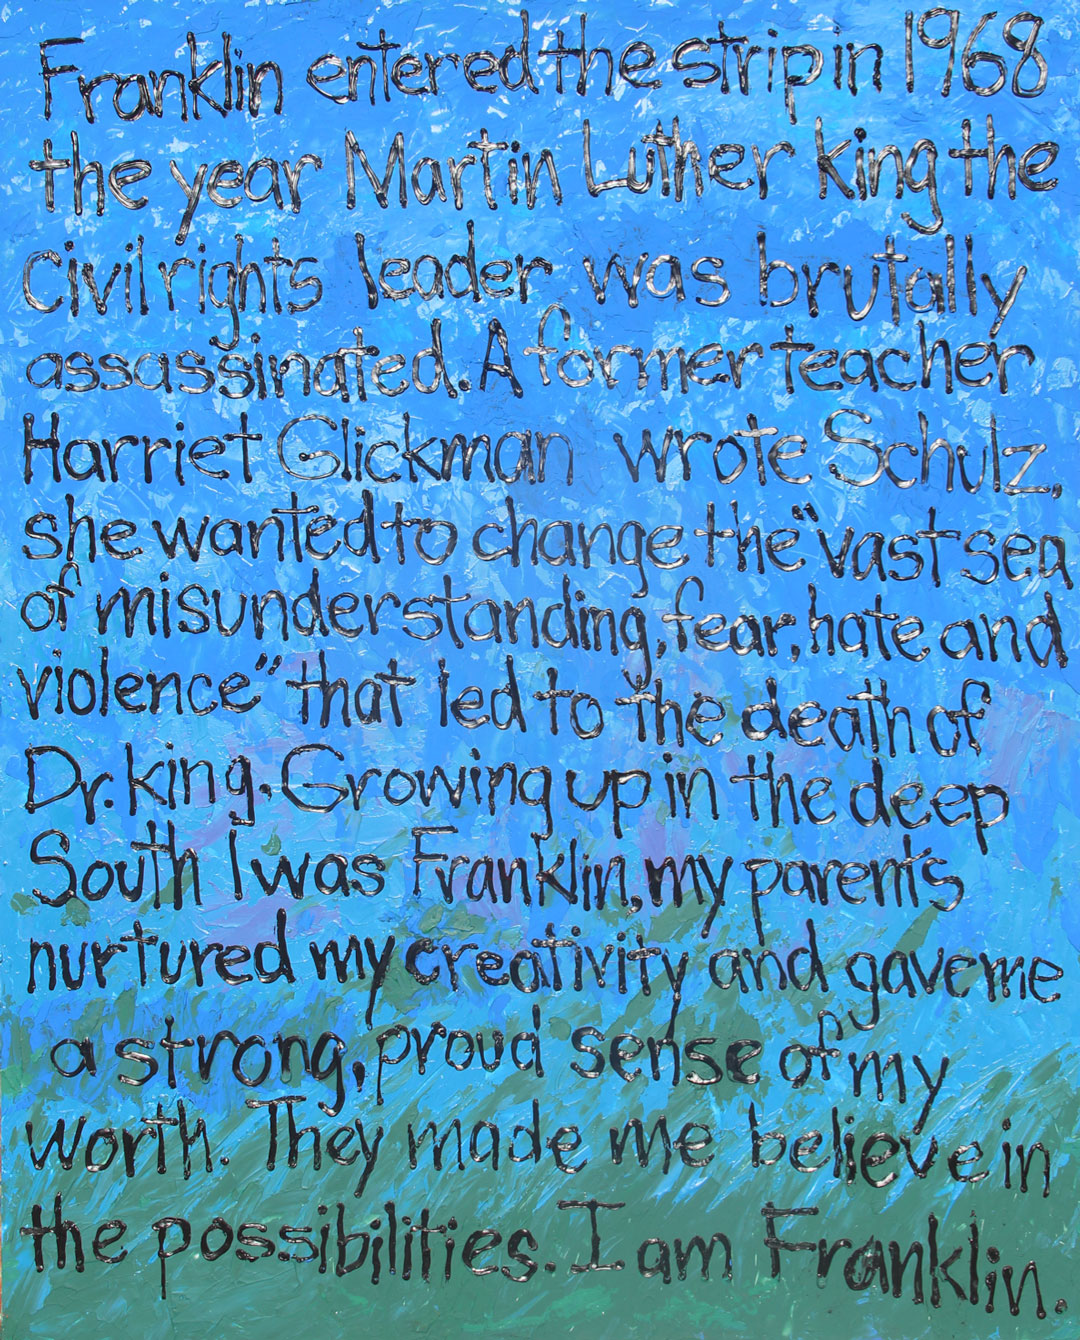 Franklin entered the strip in 1968
the year Martin Luther king the
Civil rights leader was brutally
assassinated. A former teacher
Harriet Glickman wrote Schulz,
she wanted to change the "vast sea
of misunderstanding, fear, hate and
violence" that led to the death of
Dr. king. Growing up in the deep
South I was Franklin, my parents
nurtured my creativity and gave me
a strong, proud sense of my
worth. They made me believe in
the possibilities. I am Franklin.